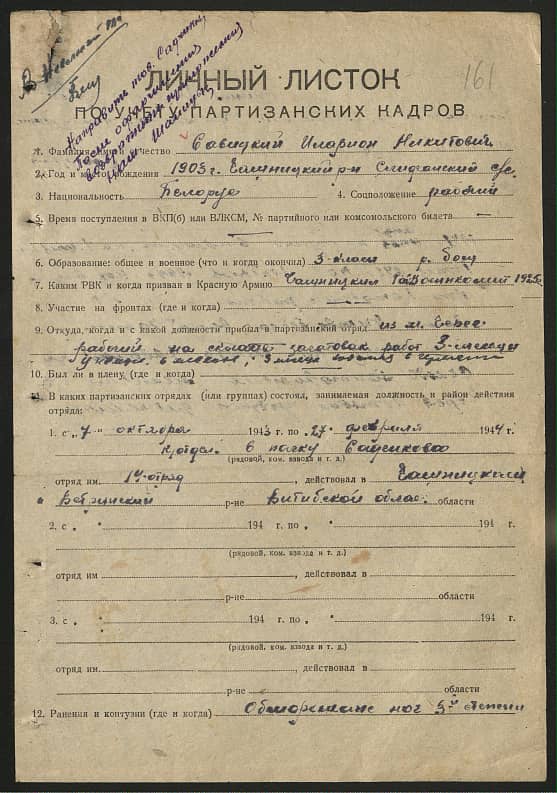 161
Направить тов. Садчик
после
ЛИЧНЫЙ ЛИСТОК
ПО УЧЕТУ ПАРТИЗАНСКИХ КАДРОВ
1. Фамилия, имя и отчество Савицкий Иларион Никитович
2. Год и место рождения 1903 г. Чашницкий р-н
3. Национальность Белорус 4. Соцположение рабочий
5. Время поступления в ВКП(б) или ВЛКСМ, № партийного или комсомольского билета
6. Образование: общее и военное (что и когда окончил) 3 класса р. боец
7. Каким РВК и когда призван в Красную Армию Чашницким Военкомат 1925 г.
8. Участие на фронтах (где и когда)
9. Откуда, когда и с какой должности прибыл в партизанский отряд из м.
рабочий на складе заготовок работ 3 месяца
10. Был ли в плену, (где и когда)
11. В каких партизанских отрядах (или группах) состоял, занимаемая должность и район действия
отряда:
1. с „7“ октября 1943 г. по „27“ февраля 1944 г.
в полку Садчикова
(рядовой, ком. взвода и т. д.)
отряд им. 14 отряд, действовал в Чашницком
и Ветринский р-не Витебской облас. области
2. с „ “ 194 г. по „ “ 194 г.
(рядовой, ком. взвода и т. д.)
отряд им , действовал в
р-не области
3. с „ “ 194 г. по „ “ 194 г.
(рядовой, ком. взвода и т. д.)
отряд им. , действовал в
р-не области
12. Ранения и контузии (где и когда) Обморожение ног 3й степени